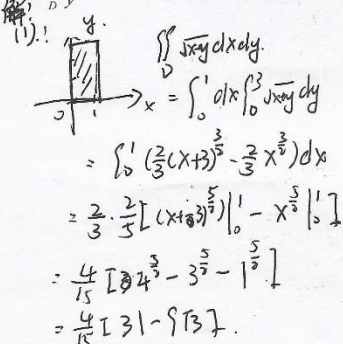 解:
(1).
y.
∬_D √(x+y) dxdy.
0 1 x
= ∫_0^1 dx ∫_0^3 √(x+y) dy
= ∫_0^1 (2/3 (x+3)^(3/2) - 2/3 x^(3/2)) dx
= 2/3 · 2/5 [ (x+3)^(5/2) |_0^1 - x^(5/2) |_0^1 ]
= 4/15 [ 4^(5/2) - 3^(5/2) - 1^(5/2) ]
= 4/15 [ 31 - 9√3 ].